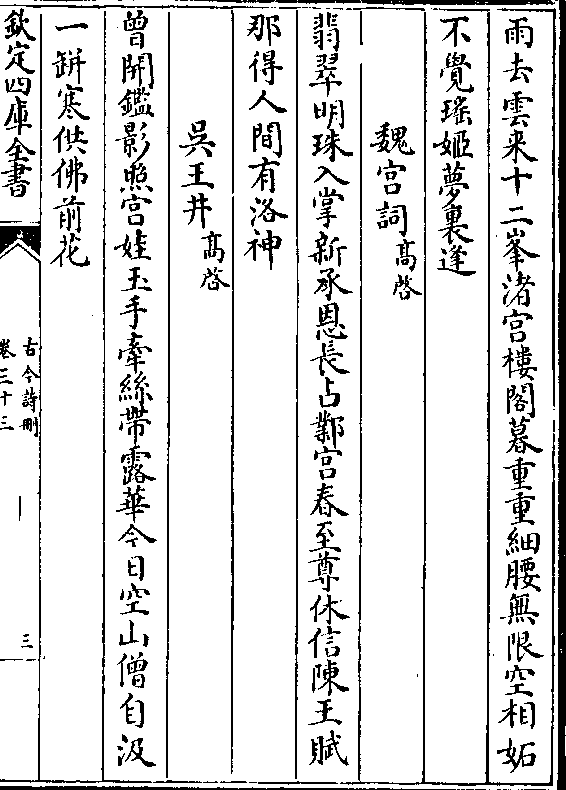 雨去雲来十二峯渚宫樓閣暮重重細腰無限空相妬
不覺瑶姬夢裏逢
魏宫詞高啓
翡翠明珠入掌新承恩長占鄴宫春至尊休信陳王賦
那得人間有洛神
吳王井高啓
曾開鑑影照宫娃玉手牽絲帶露華今日空山僧自汲
一缾寒供佛前花
欽定四庫全書
古今詩刪
卷三十三
三